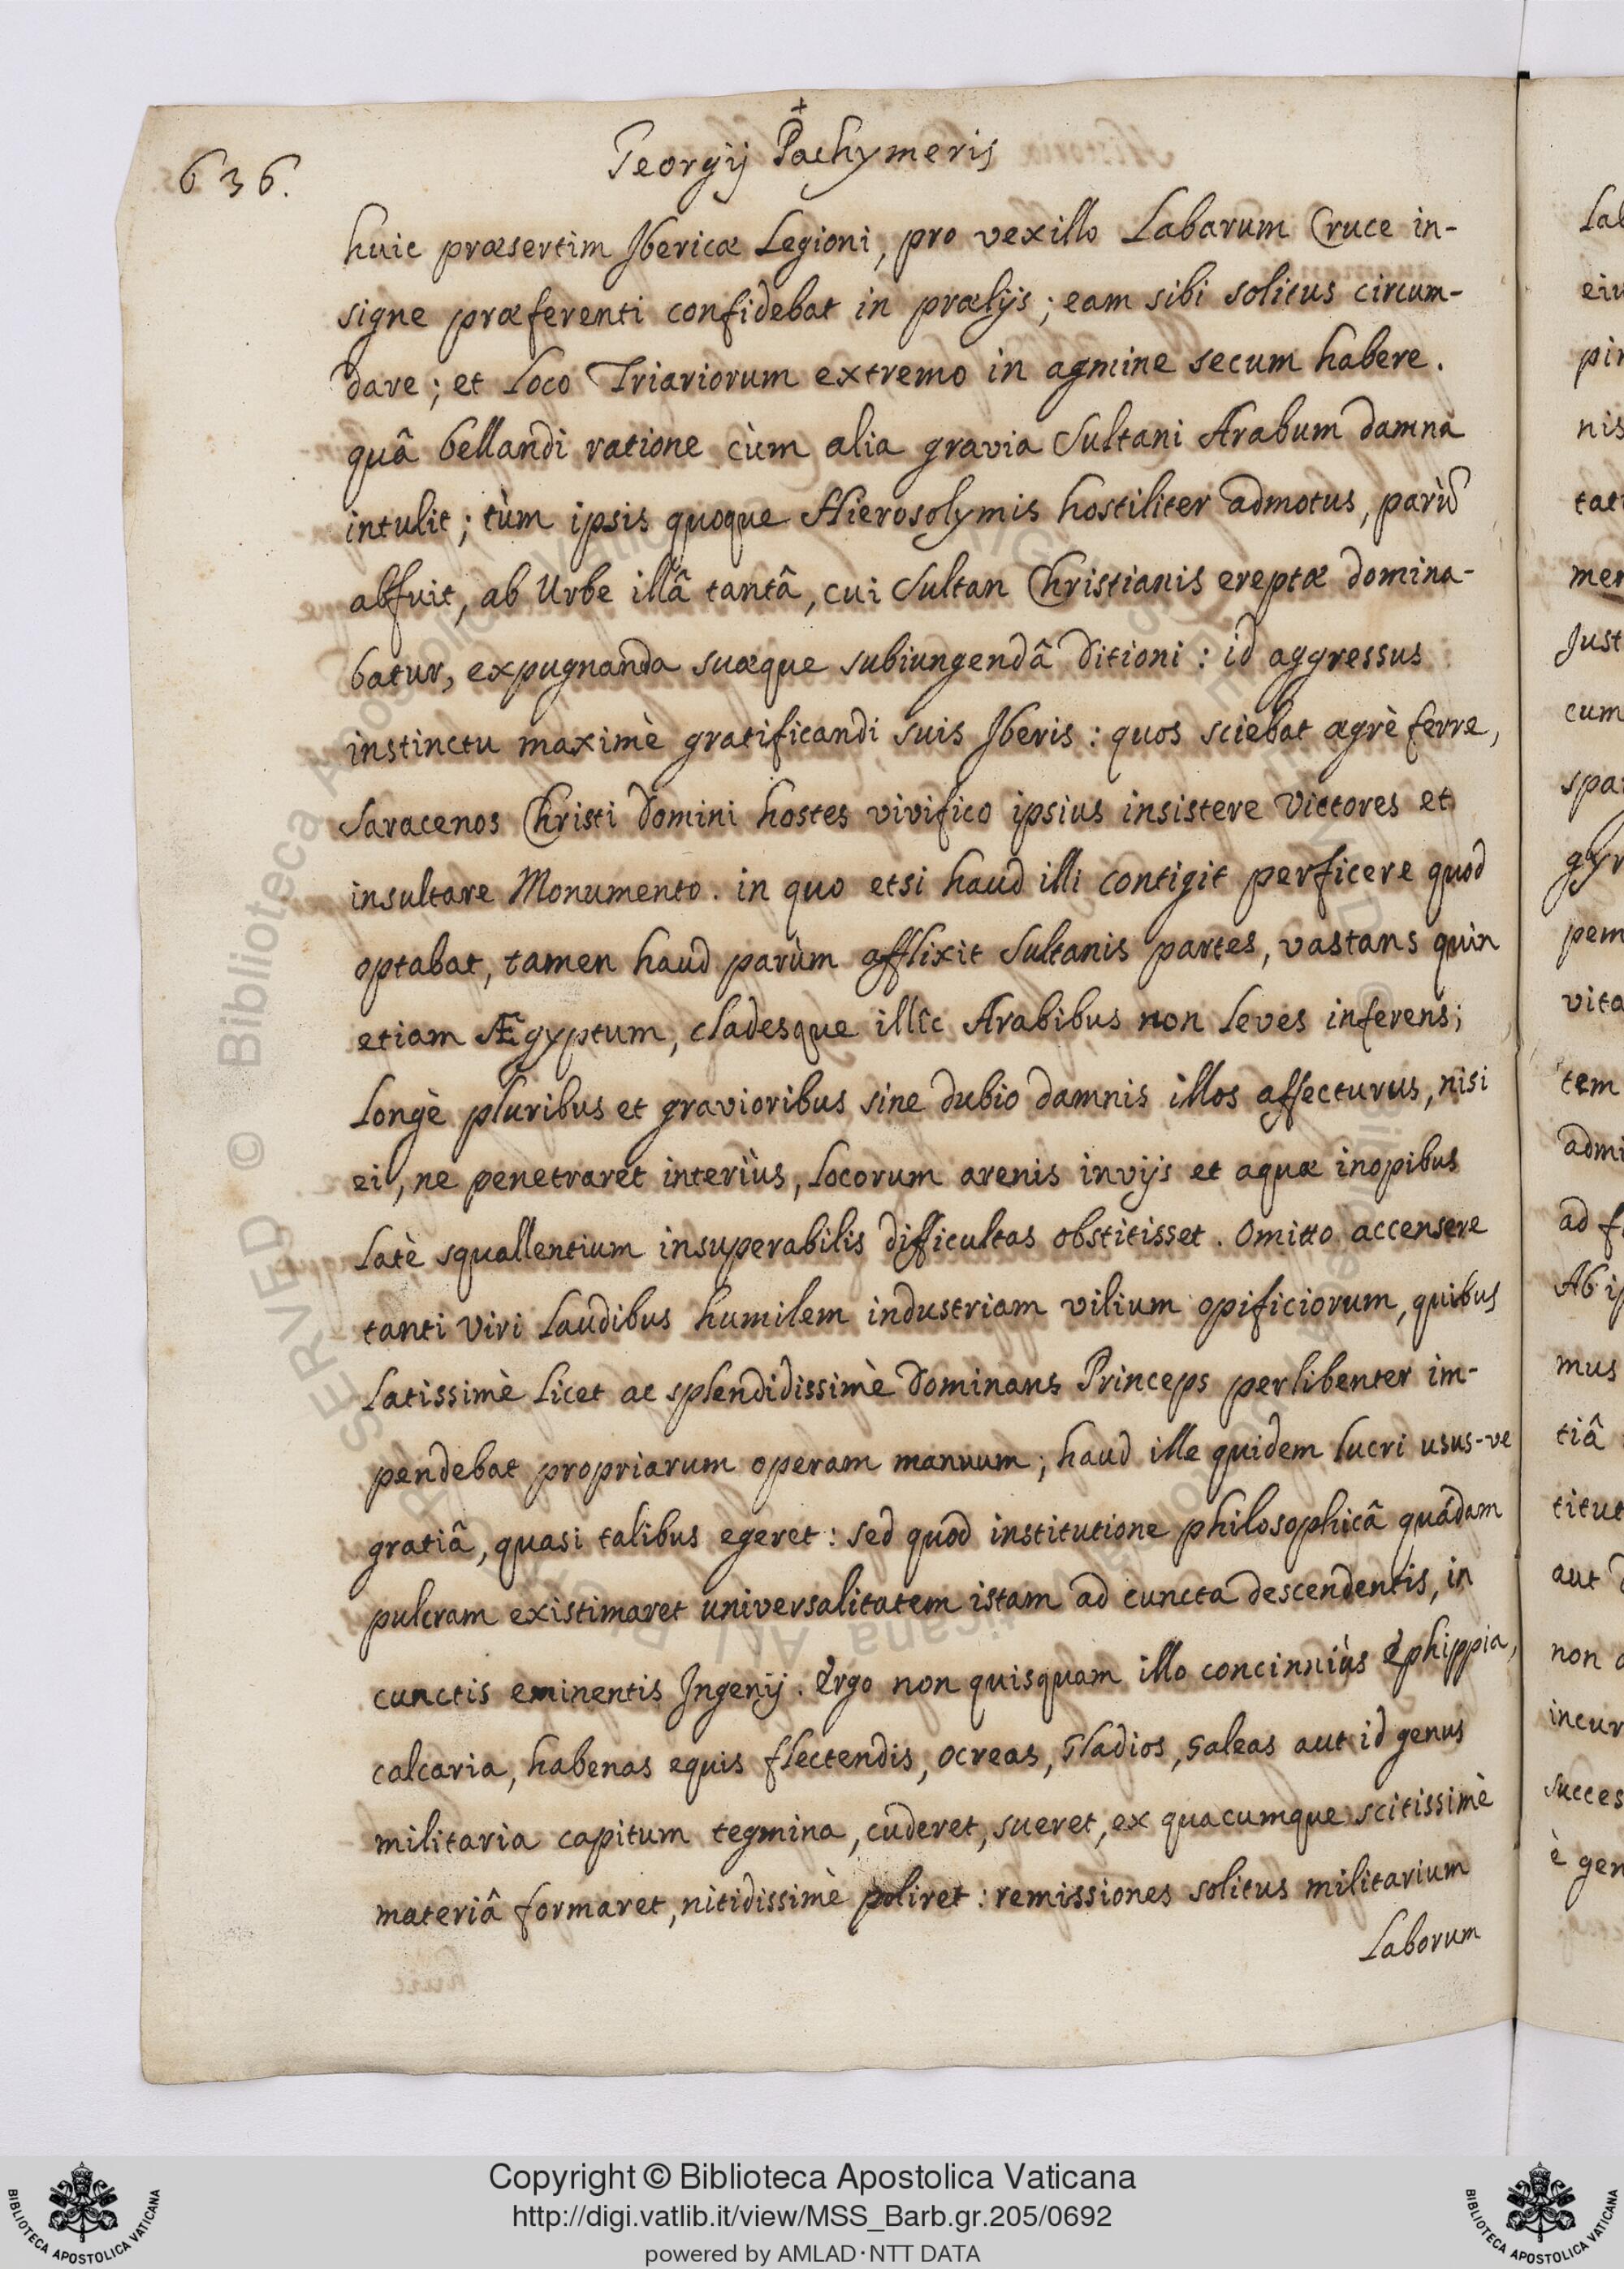 636.
Georgij Pachymeris
huic præsertim Jbericæ Legioni, pro vexillo Labarum Cruce in-
signe præferenti confidebat in prælijs; eam sibi solitus circum-
dare; et loco Triariorum extremo in agmine secum habere.
quâ bellandi ratione cùm alia gravia Sultani Arabum damna
intulit; tùm ipsis quoque Hierosolymis hostiliter admotus, parùm
abfuit, ab Urbe illâ tantâ, cui Sultan Christianis ereptæ domina-
batur, expugnanda suæque subiungendâ ditioni: id aggressus
instinctu maximè gratificandi suis Jberis: quos sciebat ægrè ferre,
Saracenos Christi Domini hostes vivifico ipsius insistere victores et
insultare Monumento. in quo etsi haud illi contigit perficere quod
optabat, tamen haud parùm afflixit Sultanis partes, vastans quin
etiam Ægyptum, cladesque illîc Arabibus non leves inferens;
longè pluribus et gravioribus sine dubio damnis illos affecturus, nisi
ei, ne penetraret interiùs, locorum arenis invijs et aquæ inopibus
latè squallentium insuperabilis difficultas obstitisset. Omitto accensere
tanti viri laudibus humilem industriam vilium opificiorum, quibus
latissimè licet ac splendidissimè dominans Princeps perlibenter im-
pendebat propriarum operam manuum; haud ille quidem lucri usus-ve
gratiâ, quasi talibus egeret: sed quod institutione philosophicâ quâdam
pulcram existimaret universalitatem istam ad cuncta descendentis, in
cunctis eminentis Jngenij. Ergo non quisquam illo concinniùs Ephippia,
calcaria, habenas equis flectendis, ocreas, gladios, galeas aut id genus
militaria capitum tegmina, cuderet, sueret, ex quacumque scitissimè
materiâ formaret, nitidissimè poliret: remissiones solitus militarium
Laborum
Copyright © Biblioteca Apostolica Vaticana
http://digi.vatlib.it/view/MSS_Barb.gr.205/0692
powered by AMLAD·NTT DATA
BIBLIOTECA APOSTOLICA VATICANA
BIBLIOTECA APOSTOLICA VATICANA